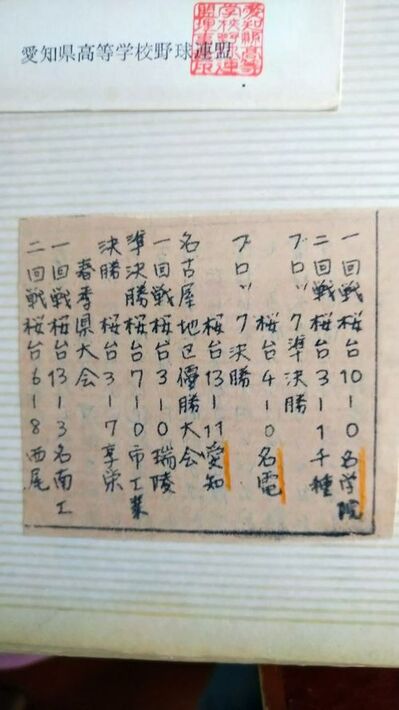 愛知県高等学校野球連盟
一回戦桜台10-0名学院
二回戦桜台3-1千種
ブロック準決勝
桜台4-0名電
ブロック決勝
桜台13-11愛知
名古屋地区優勝大会
一回戦桜台3-0瑞陵
準決勝桜台7-0市工業
決勝 桜台3-7享栄
春季県大会
一回戦桜台13-3名南工
二回戦桜台6-8西尾